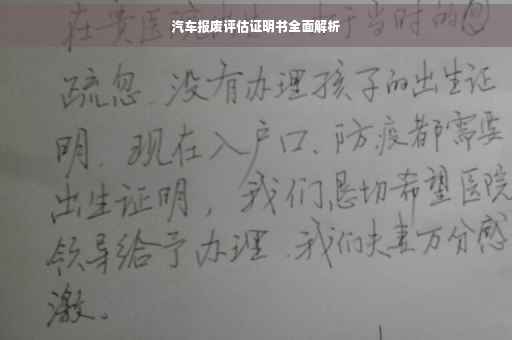 汽车报废评估证明书全面解析
在贵医院出生,由于当时的
疏忽、没有办理孩子的出生证
明、现在入户口、防疫都需要
出生证明,我们恳切希望医院
领导给予办理、我们夫妻万分感
激。